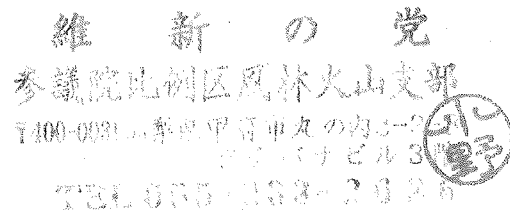 維新の党
参議院比例区風林火山支部
〒400-0031 山梨県甲府市丸の内3-3-
ナビル3階
TEL 055-233-2626
小野